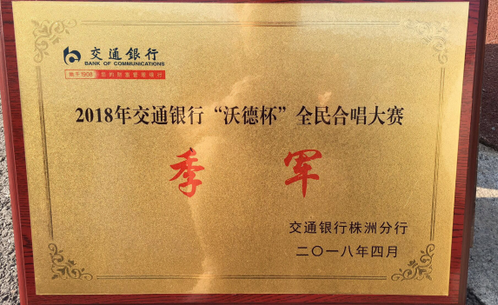 交通銀行
BANK OF COMMUNICATIONS
始于1908 您的财富管家银行
2018年交通银行“沃德杯”全民合唱大赛
季军
交通银行株洲分行
二〇一八年四月